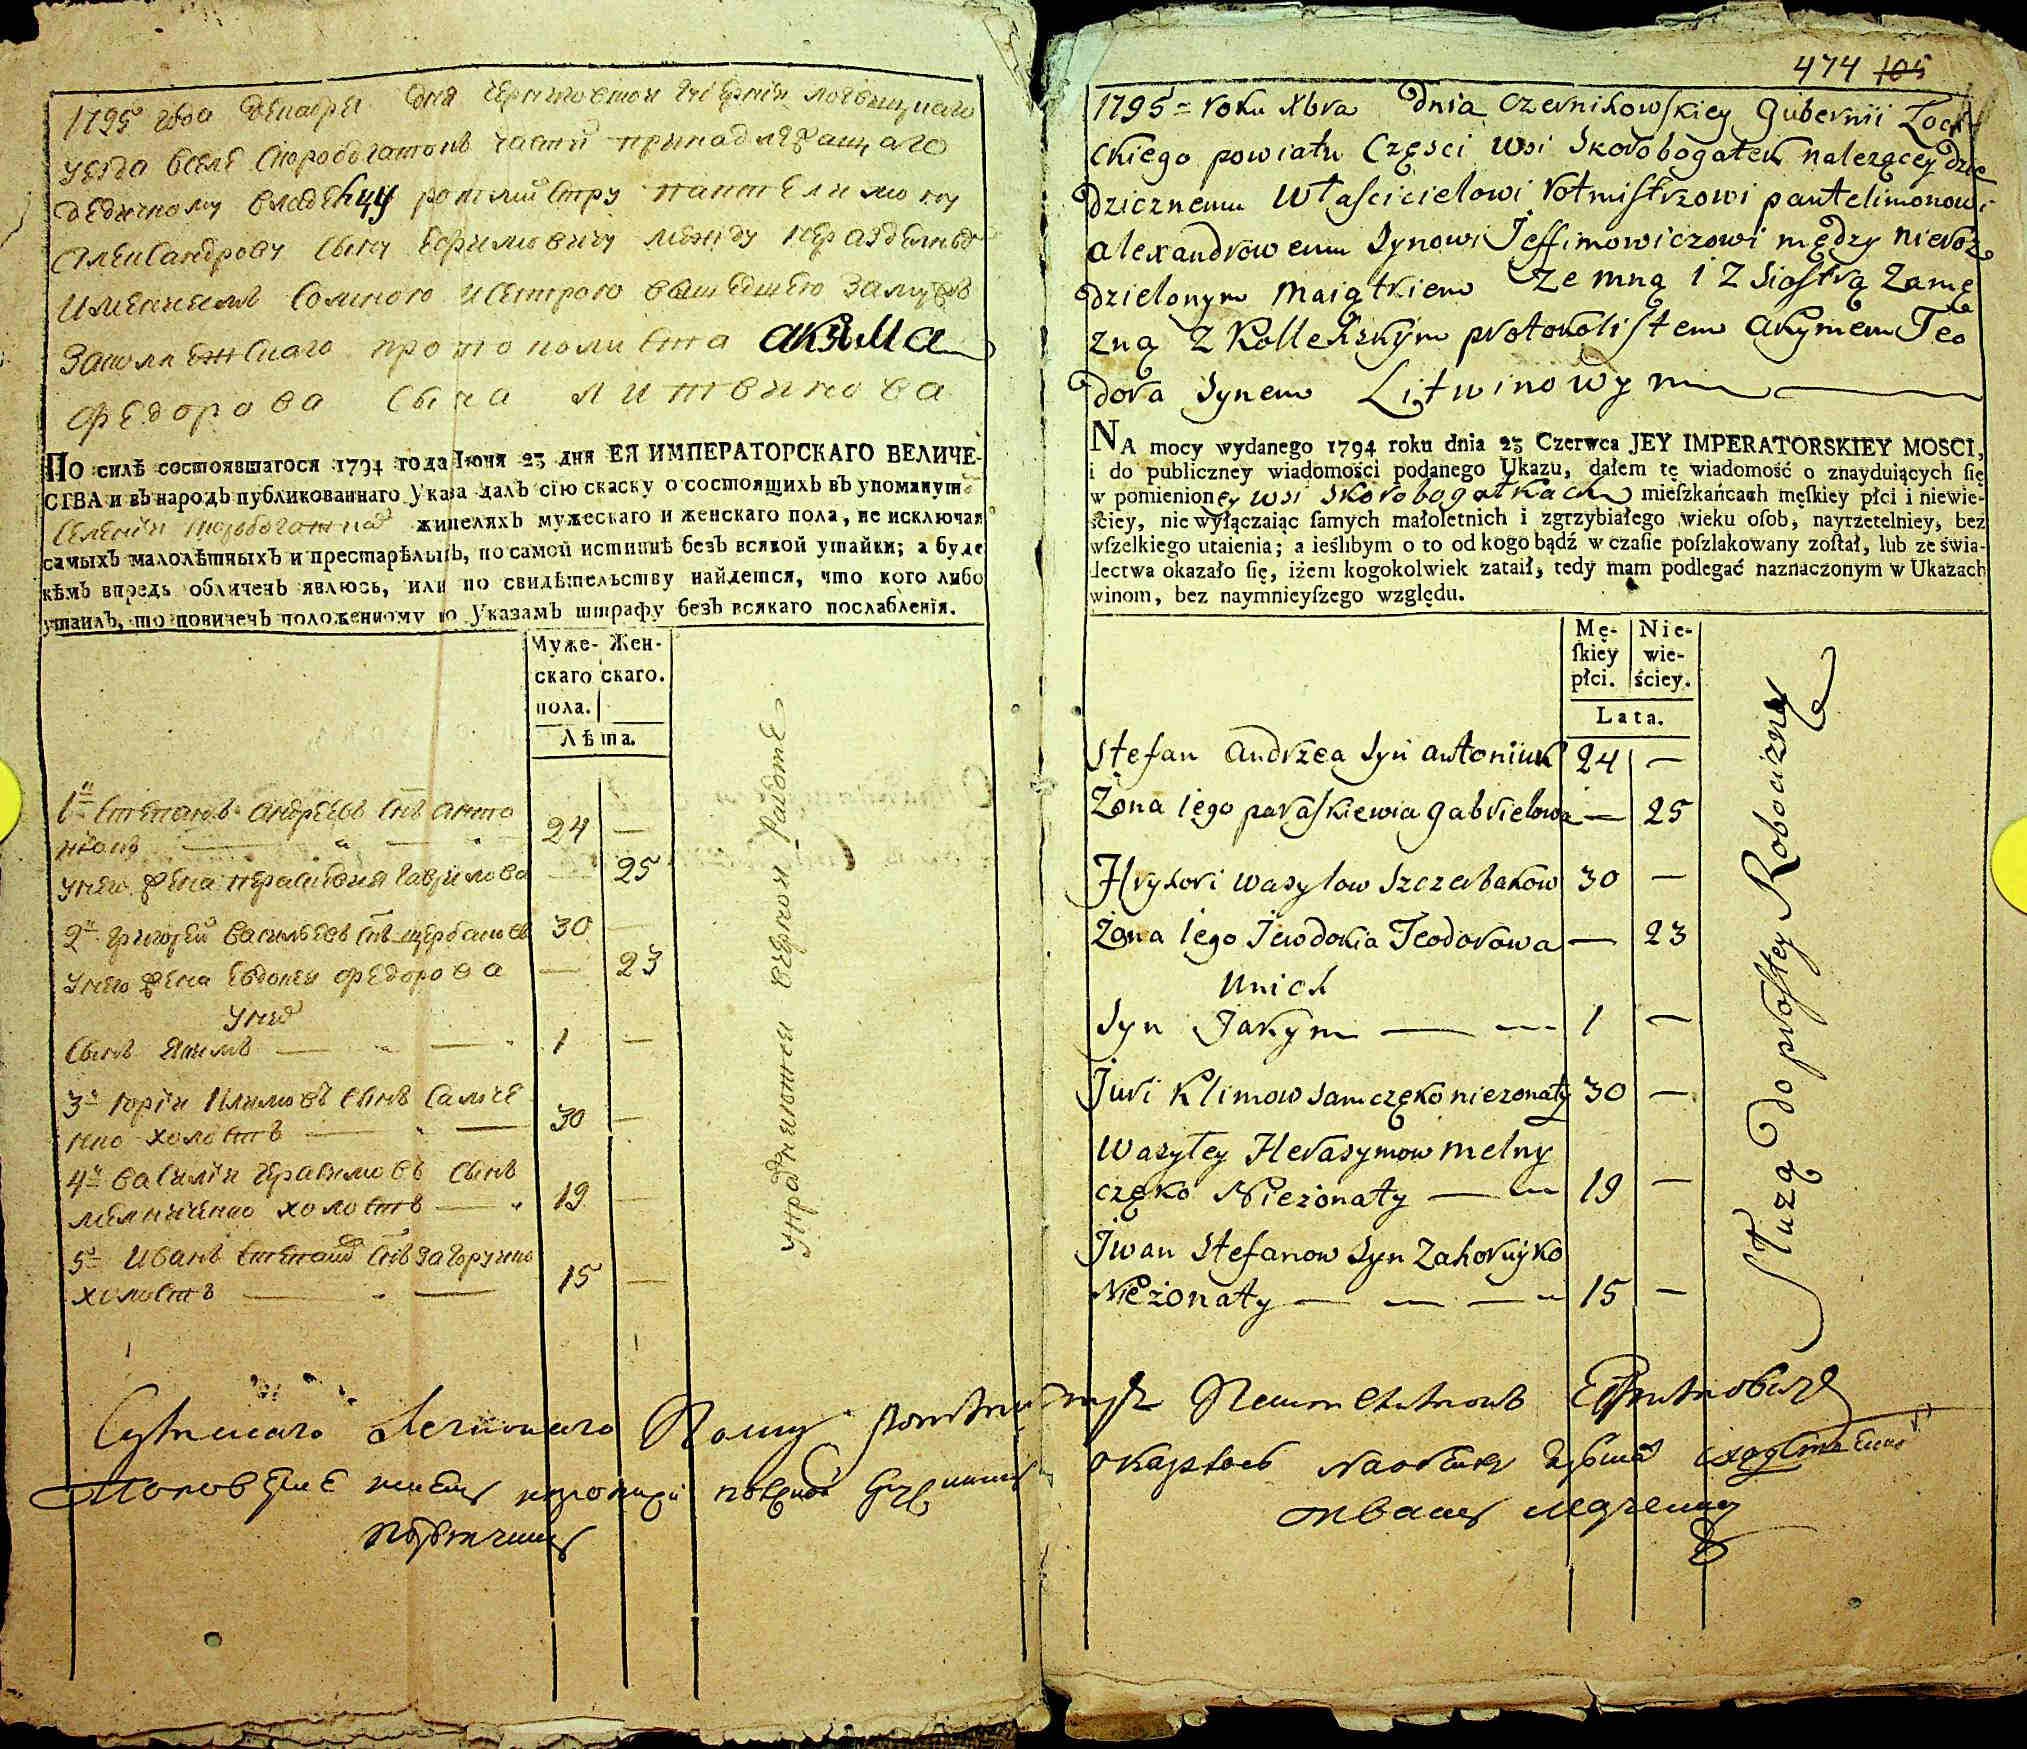 1795 года декабря дня черниговской губернии лохвицкаго
уезда вселе скоробогатокъ части принадлежащаго
дедичному владельцу ротмистру пантелимону
Александрову сыну Ефимовичу между нераздельнъ
имениемъ сомною исестрою вышедшею замужъ
протоколиста акима
Федорова сына литвинова
ПО силѣ состоявшагося 1794 года Іюня 23 дня ЕЯ ИМПЕРАТОРСКАГО ВЕЛИЧЕ-
СТВА и въ народъ публикованнаго указа далъ сію скаску о состоящихъ въ упомянутн
селении жителяхъ мужескаго и женскаго пола, не исключая
самыхъ малолѣтныхъ и престарѣлыхъ, по самой истиннѣ безъ всякой утайки; а буде
кѣмъ впредь обличенъ явлюсь, или по свидѣтельству найдется, что кого либо
утаилъ, то повиненъ положенному по Указамъ штрафу безъ всякаго послабленія.
Муже- Жен-
скаго скаго.
пола.
Лѣта.
1й степанъ андреевъ снъ анто
нюкъ 24 —
унего жена параскевия гаврилова — 25
2й григорей васильевъ снъ щербаковъ 30 —
унего жена Евдокея федорова — 23
унихъ
сынъ Якимъ 1 —
3й юрiи климовъ сынъ самче
нко холостъ 30 —
4й василiи герасимовъ сынъ
мелниченко холостъ 19 —
5й иванъ степановъ снъ загоруйко
холостъ 15 —
упражняются вчерной работе
474 105
1795 = roku Xbra dnia Czernihowskiey Gubernii Łoch
ckiego powiatu Częsci wsi Skorobogatek nalezącey dzie
dzicznemu Włascicielowi rotmistrzowi pantelimonowi
alexandrowemu synowi Jeffimowiczowi między nieroz
dzielonym maiątkiem ze mną i z siostrą zamę
zną z Kolleskym protokolistem akymem Teo
dora synem Litwinowym
NA mocy wydanego 1794 roku dnia 23 Czerwca JEY IMPERATORSKIEY MOSCI,
i do publiczney wiadomości podanego Ukazu, dałem tę wiadomość o znayduiących się
w pomienioney wsi Skorobogatkach mieſzkańcach męſkiey płci i niewie-
ściey, nie wyłączaiąc ſamych małoletnich i zgrzybiałego wieku oſob, nayrzetelniey, bez
wſzelkiego utaienia; a ieślibym o to od kogo bądź w czaſie poſzlakowany zoſtał, lub ze świa-
dectwa okazało ſię, iżem kogokolwiek zataił, tedy mam podlegać naznaczonym w Ukazach
winom, bez naymnieyſzego względu.
Mę- Nie-
ſkiey wie-
płci. ściey.
Lata.
Stefan Andrzea syn antoniuk 24 —
Żona Iego paraskiewia gabrielowa — 25
Hryhori wasylow Szczerbakow 30 —
Żona Iego Jewdokia Teodorowa — 23
Unich
Syn Jakym 1 —
Juri Klimow samczęko niezonaty 30 —
Wasyley Herasymow melny
częko Nieżonaty 19 —
Jwan Stefanow Syn Zahoruyko
Nieżonaty 15 —
Służą do prostey Roboczny